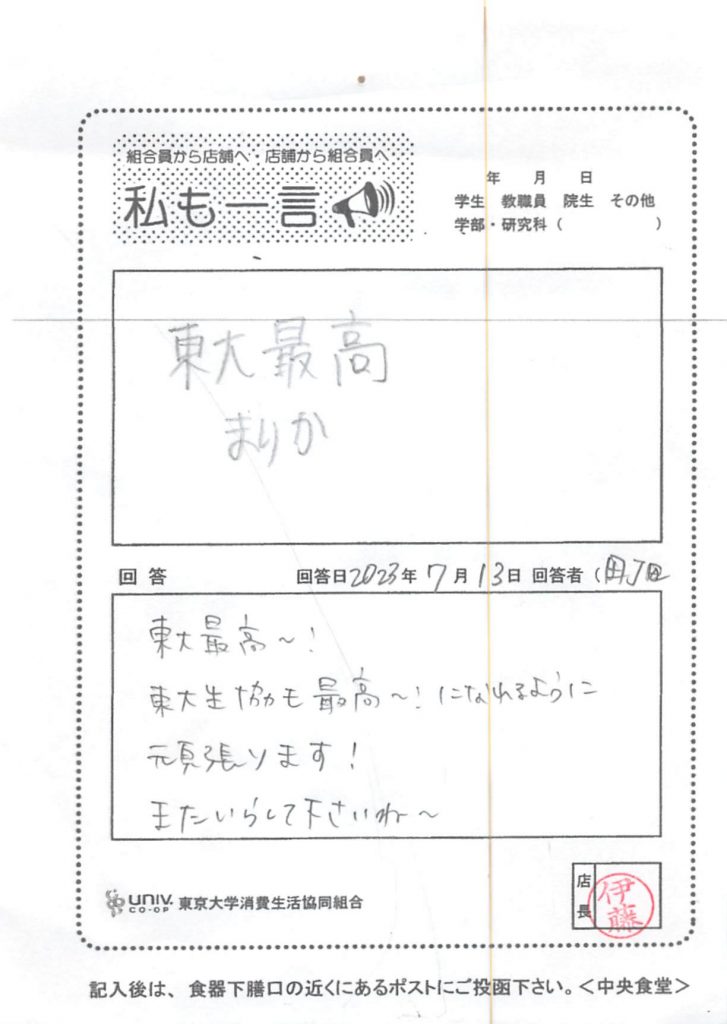 組合員から店舗へ・店舗から組合員へ
私も一言
年 月 日
学生 教職員 院生 その他
学部・研究科（ ）
東大最高
まりか
回答 回答日2023年7月13日 回答者（
東大最高～！
東大生協も最高～！になれるように
頑張ります！
またいらして下さいね～
店長 伊藤
UNIV. CO-OP 東京大学消費生活協同組合
記入後は、食器下膳口の近くにあるポストにご投函下さい。＜中央食堂＞